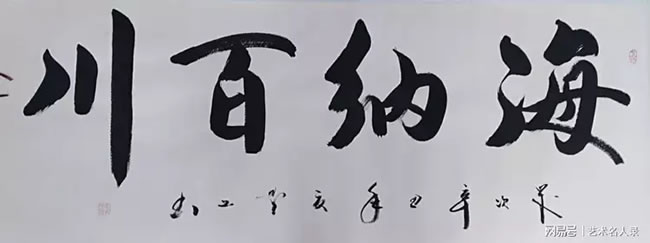 海纳百川
岁次辛丑年
网易号 | 艺术名人录